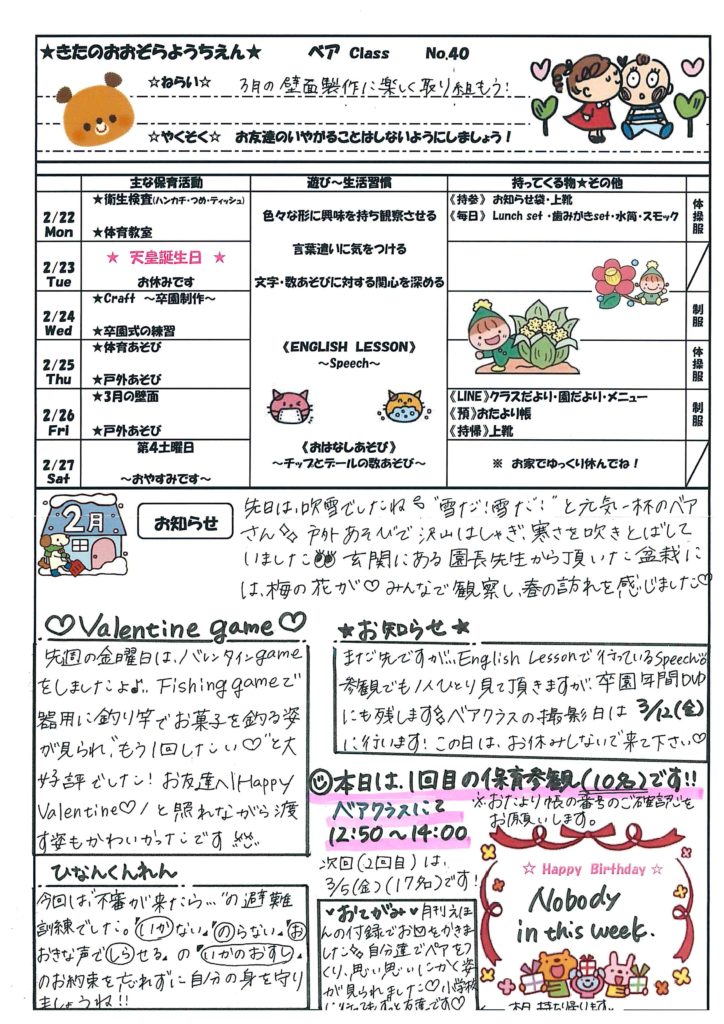 ★きたのおおぞらようちえん★ ベア Class No.40
☆ねらい☆ 3月の壁面製作に楽しく取り組もう!
☆やくそく☆ お友達のいやがることはしないようにしましょう!
主な保育活動 遊び～生活習慣 持ってくる物★その他
2/22 Mon
★衛生検査(ハンカチ・つめ・ティッシュ)
★体育教室
色々な形に興味を持ち観察させる
《持参》 お知らせ袋・上靴
《毎日》 Lunch set ・歯みがきset・水筒・スモック
体操服
2/23 Tue
★ 天皇誕生日 ★
お休みです
言葉遣いに気をつける
文字・数あそびに対する関心を深める
2/24 Wed
★Craft ～卒園制作～
★卒園式の練習
制服
2/25 Thu
★体育あそび
★戸外あそび
《ENGLISH LESSON》
～Speech～
体操服
2/26 Fri
★3月の壁面
★戸外あそび
《LINE》クラスだより・園だより・メニュー
《預》おたより帳
《持帰》上靴
制服
2/27 Sat
第4土曜日
～おやすみです～
《おはなしあそび》
～チップとデールの数あそび～
※ お家でゆっくり休んでね!
2月
お知らせ
先日は、吹雪でしたね "雪だ!雪だ!"と元気一杯のベア
さん 戸外あそびで沢山はしゃぎ、寒さを吹きとばして
いました 玄関にある園長先生から頂いた盆栽
には、梅の花が♡みんなで観察し、春の訪れを感じました♡
♡Valentine game♡
先週の金曜日は、バレンタインgame
をしましたよ♪.. Fishing gameで
器用に釣り竿でお菓子を釣る姿
が見られ、"もう1回したい♡"と大
好評でした! お友達へ\Happy
Valentine♡/と照れながら渡
す姿もかわいかったです
★お知らせ★
まだ先ですが... English Lessonで行っているSpeech
参観でも1人ひとり見て頂きますが、卒園年間DVD
にも残します ベアクラスの撮影日は 3/12(金)
に行います! この日は、お休みしないで来て下さい♡
本日は、1回目の保育参観(10名)です!!
ベアクラスにて
12:50～14:00
※おたより帳の番号のご確認を
お願いします。
次回(2回目)は、
3/5(金)(17名)です!
ひなんくんれん
今回は"不審が来たら..."の避難
訓練でした。「いかない。」のらない。「お
おきな声で」しらせる。の「いかのおすし」
のお約束を忘れずに自分の身を守り
ましょうね!!
♥おてがみ♥ 月刊えほ
んの付録でお図かきま
した 自分達でペアをつ
くり、思い思いにかく姿
が見られました♡小学校
に行ってもずっと友達です♡
☆ Happy Birthday ☆
Nobody
in this week.